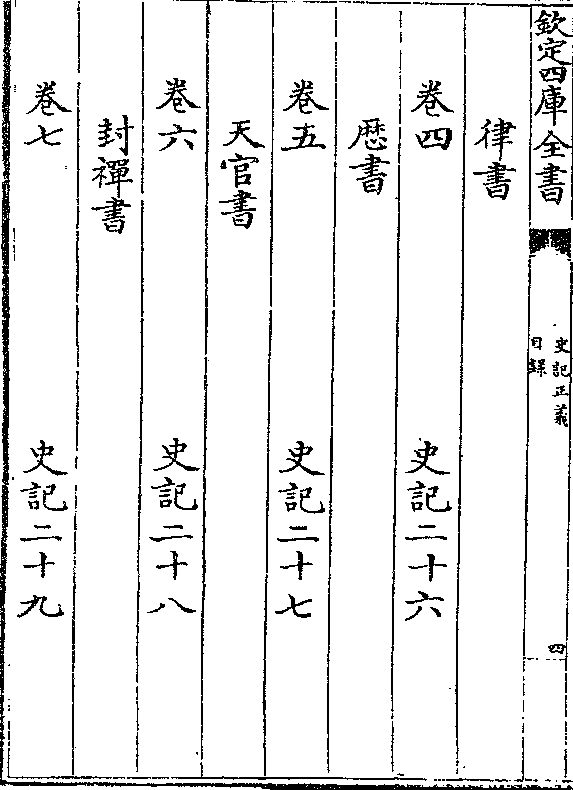 欽定四庫全書
史記正義
目録
四
律書
卷四 史記二十六
歴書
卷五 史記二十七
天官書
卷六 史記二十八
封禪書
卷七 史記二十九